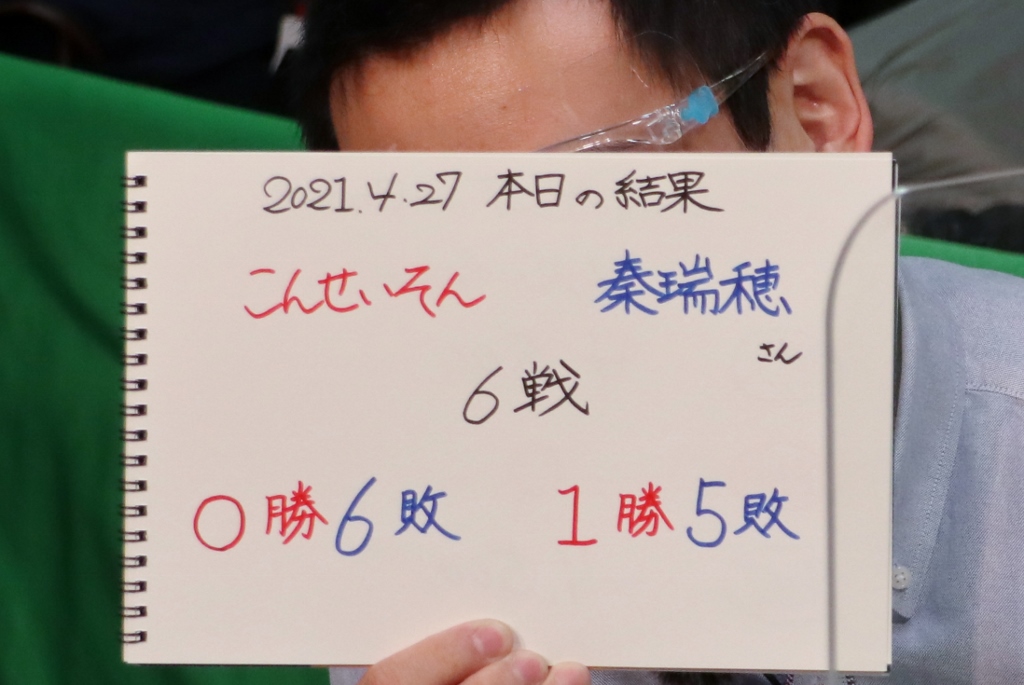 2021.4.27 本日の結果
こんせいそん 秦瑞穂
さん
6戦
0勝6敗 1勝5敗